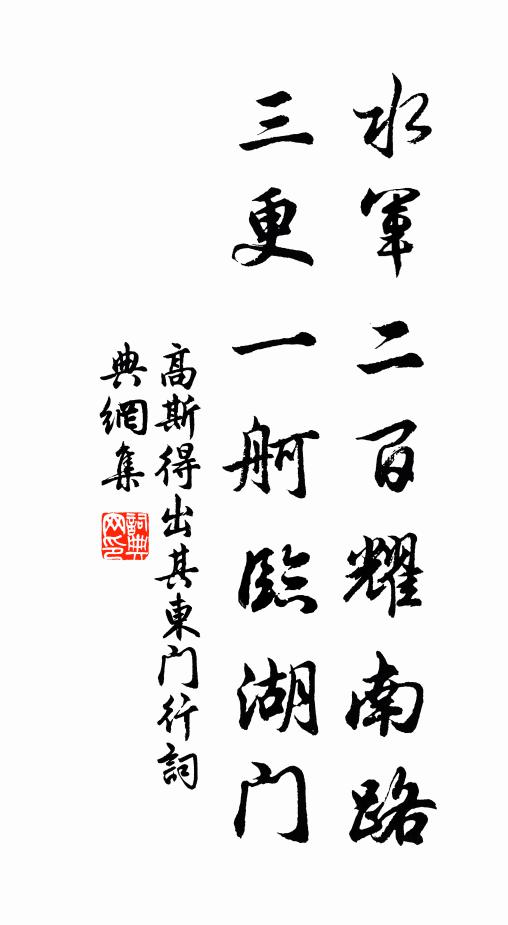 水軍二百耀南路
三更一舸臨湖門
高斯得出其東門行詞
典網集
詞典網印